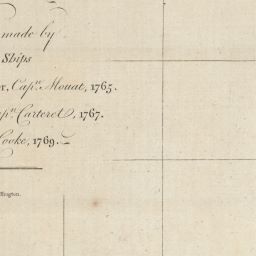 made by
Ships
r, Capn. Mouat, 1765.
apn. Carteret, 1767.
Cooke, 1769.
ffington.